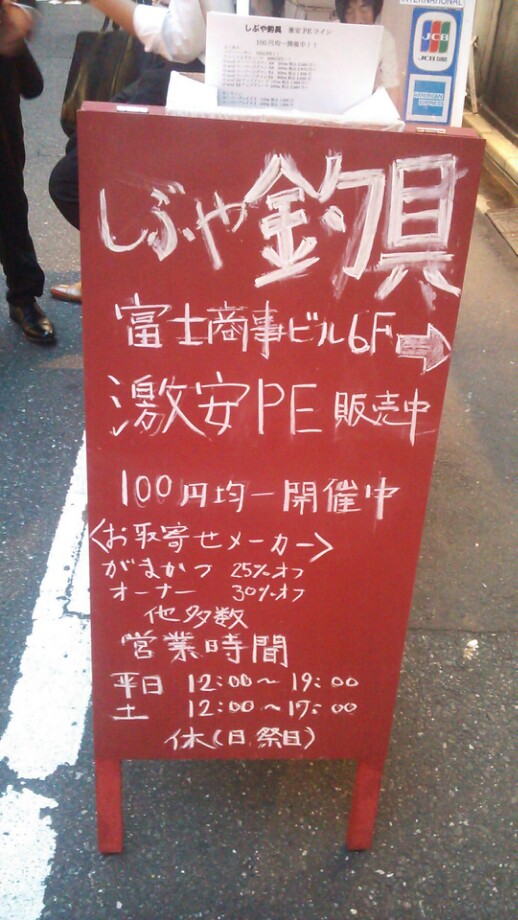 しぶや釣具 激安PEライン
100円均一開催中！！
INTERNATIONAL
JCB
JCB CARD
AMERICAN EXPRESS
しぶや釣具
富士商事ビル6F→
激安PE 販売中
100円均一開催中
<お取寄せメーカー>
がまかつ 25%オフ
オーナー 30%オフ
他多数
営業時間
平日 12:00～19:00
土 12:00～17:00
休(日祭日)